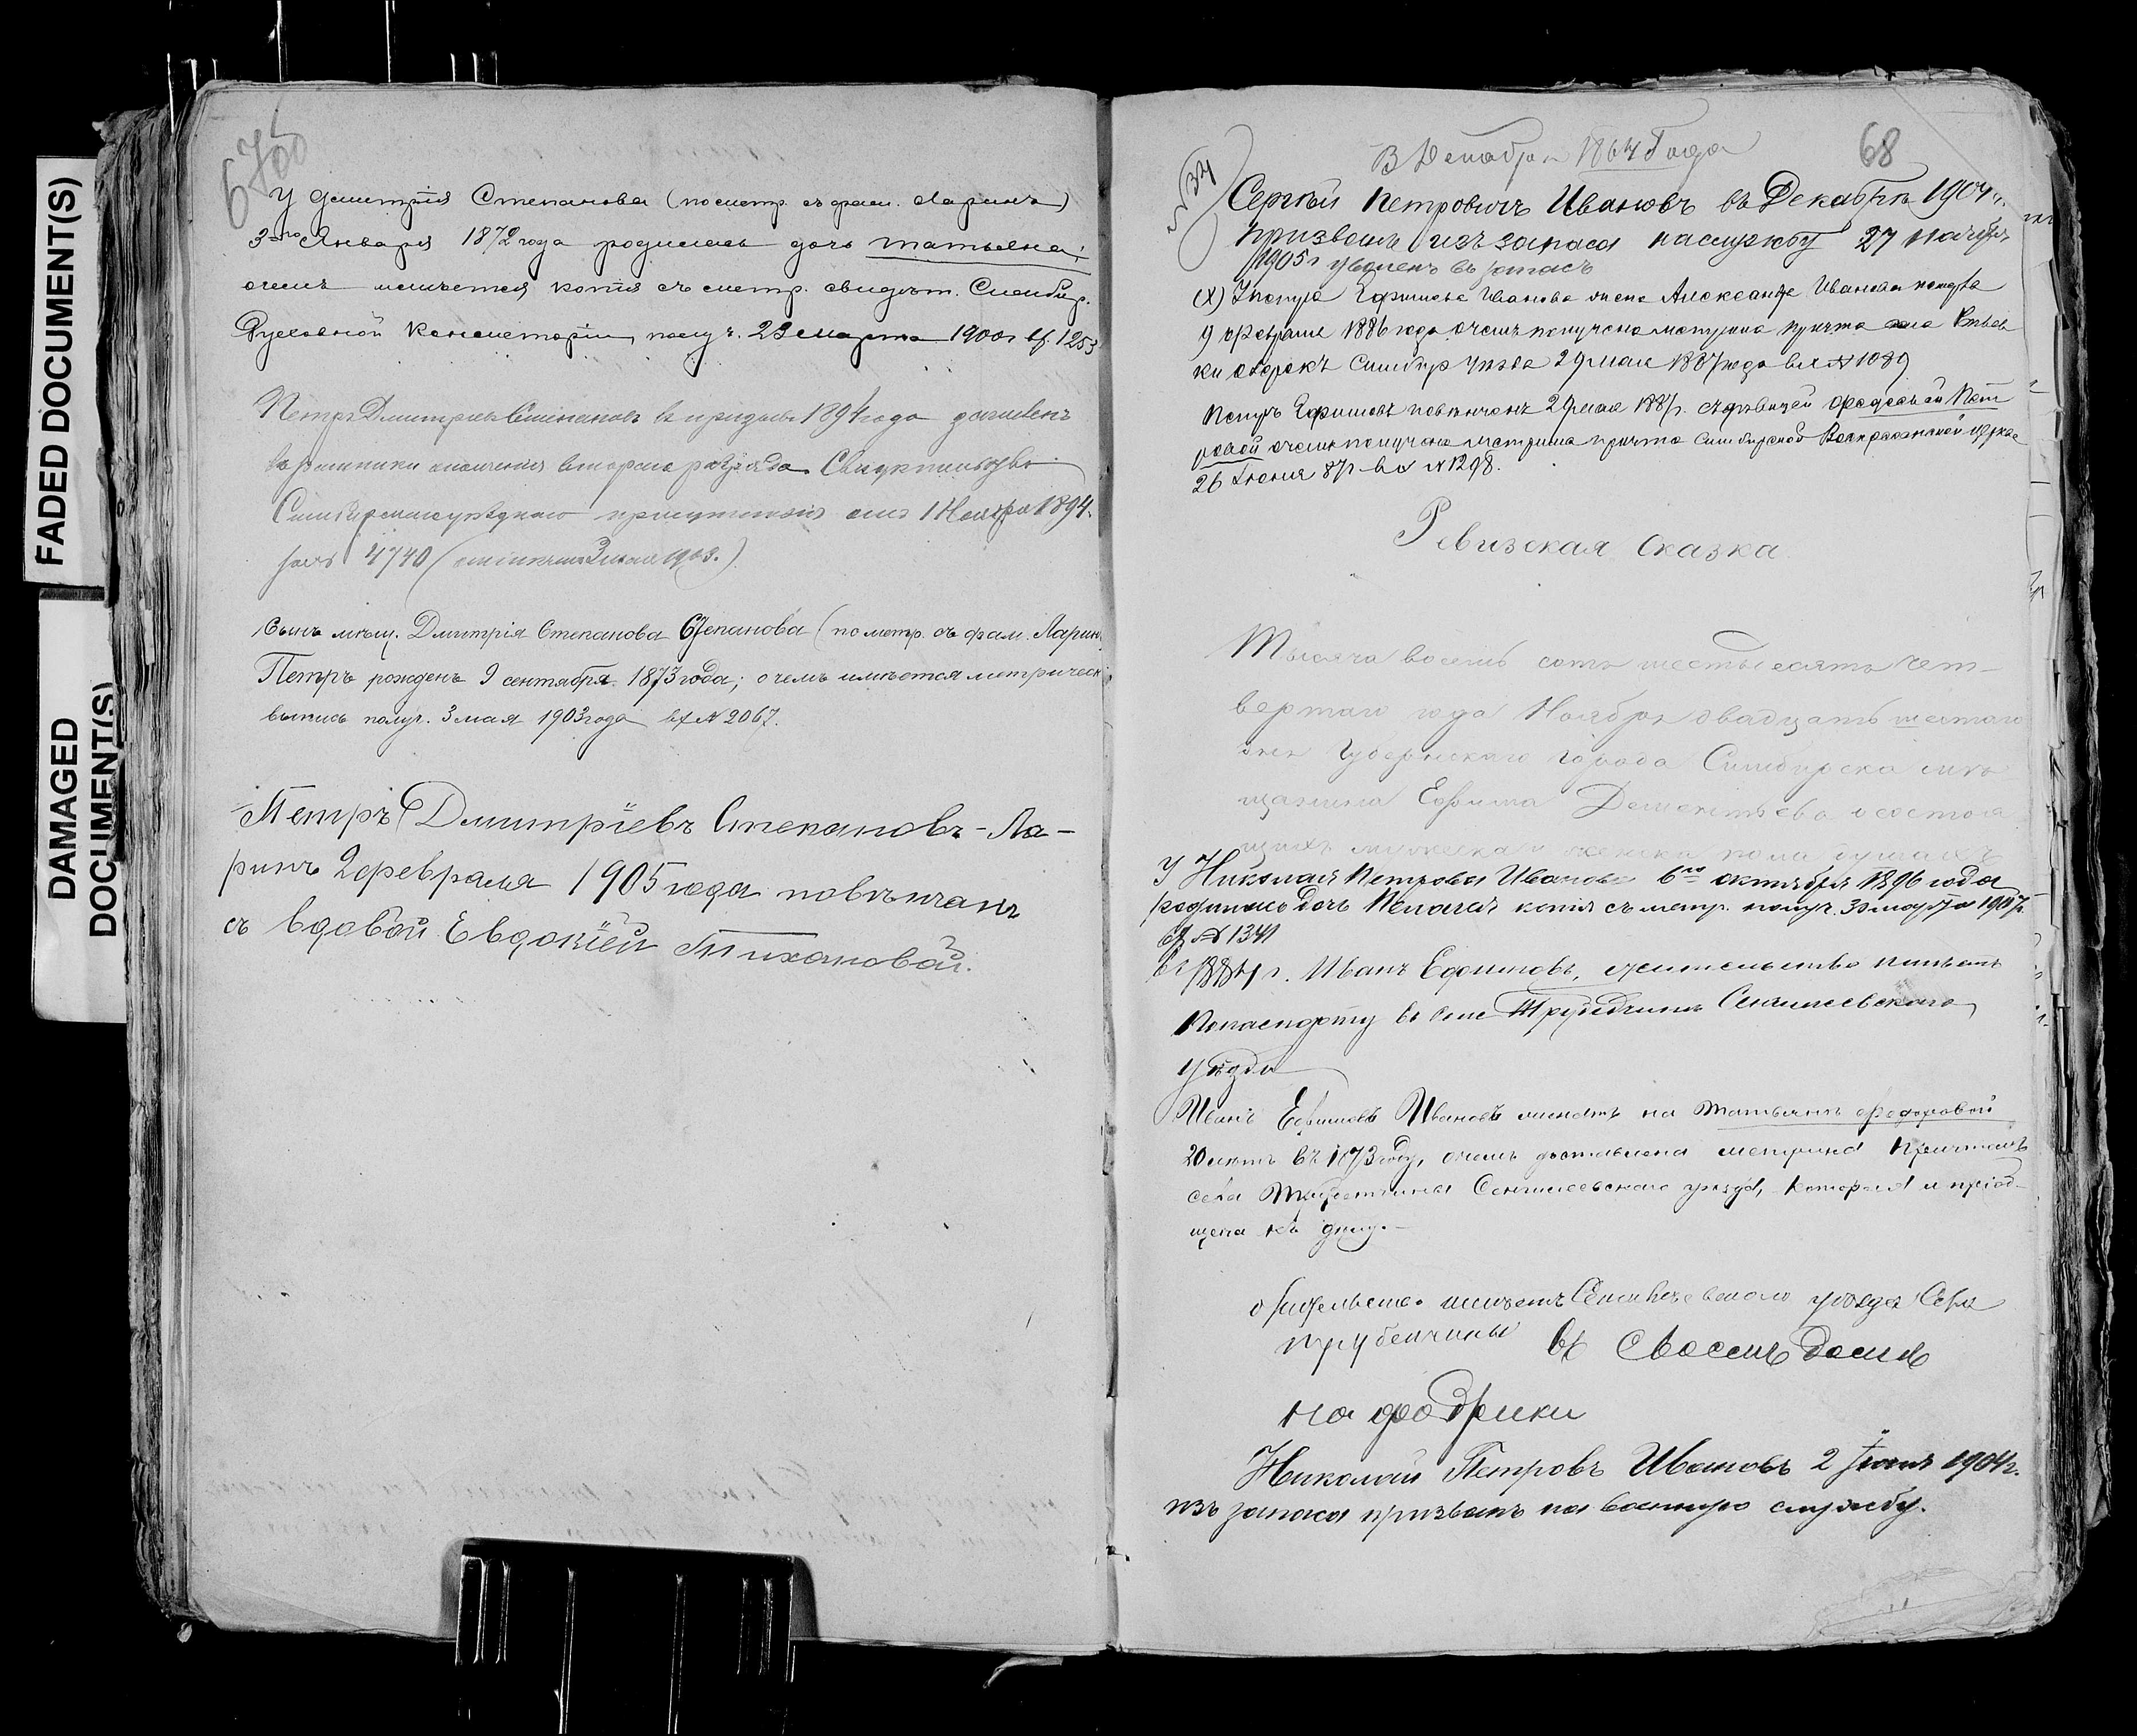 FADED DOCUMENT(S)
DAMAGED
DOCUMENT(S)
У Дмитрія Степанова (по метр. съ фам. Ларинъ)
3-го Января 1872 года родилась дочь Татьяна;
о чемъ имѣется копія съ метр. свидѣт. Симбир.
Духовной Консисторіи, получ. 23 марта 1900 г. вх. 1253
Петръ Дмитріевъ Степановъ въ призывъ 1894 года зачисленъ
въ ратники ополченія втораго разряда Свидѣтельство
Симбирскаго уѣзднаго присутствія отъ 1 Ноября 1894
за № 4740 (3 мая 1903.)
Сынъ мѣщ. Дмитрія Степанова Степанова (по метр. съ фам. Ларин.
Петръ рожденъ 9 сентября 1873 года; о чемъ имѣется метрическ.
выпись получ. 3 мая 1903 года вх № 2067.
Петръ Дмитріевъ Степановъ-Ла-
ринъ 2 февраля 1905 года повѣнчанъ
съ вдовой Евдокіей Тихановой.
В Декабрѣ 1864 Года
68
№ 34
Сергѣй Петровичъ Ивановъ въ Декабрѣ 1904 г.
призванъ изъ запаса на службу 27
1905 г уволенъ въ запасъ
(Х) У Петра Ефимова Иванова жена Александра Иванова померла
9 февраля 1886 года о чемъ получена метрика причта села
ки Симбир уѣзда 29 мая 1887 года вх № 1089
Петръ Ефимовъ повѣнчанъ 29 мая 1887 г. съ дѣвицей Федосьей Пет
ровой о чемъ получена метрика причта Симбирской Воскресенской церкви
26 Іюня 87 г. вх № 1298.
Ревизская Сказка
Тысяча восемь сотъ шестьдесятъ чет-
вертаго года Ноября двадцать шестаго
дня Губернскаго города Симбирска мѣ
щанина Ефима Дементьева о состоя
щихъ мужеска и женска пола душахъ
У Николая Петрова Иванова 6го октября 1896 года
родилась дочь Пелагея копія съ метр. получ. 30 марта 1907 г.
вх № 1341
въ 1884 г. Иванъ Ефимовъ, жительство имѣетъ
по паспорту въ селѣ Сенгилеевскаго
уѣзда
Иванъ Ефимовъ Ивановъ женатъ на Татьянѣ Федоровой
20 лѣтъ въ 1873 году, о чемъ доставлена метрика Причтомъ
села Сенгилеевскаго уѣзда, которая и пріоб-
щена къ дѣлу.—
жительство имѣетъ Сенгилеевскаго уѣзда Села
Трубетчины въ Своемъ домѣ
на фабрики
Николай Петровъ Ивановъ 2 Іюня 1904 г.
изъ запаса призванъ на военную службу.